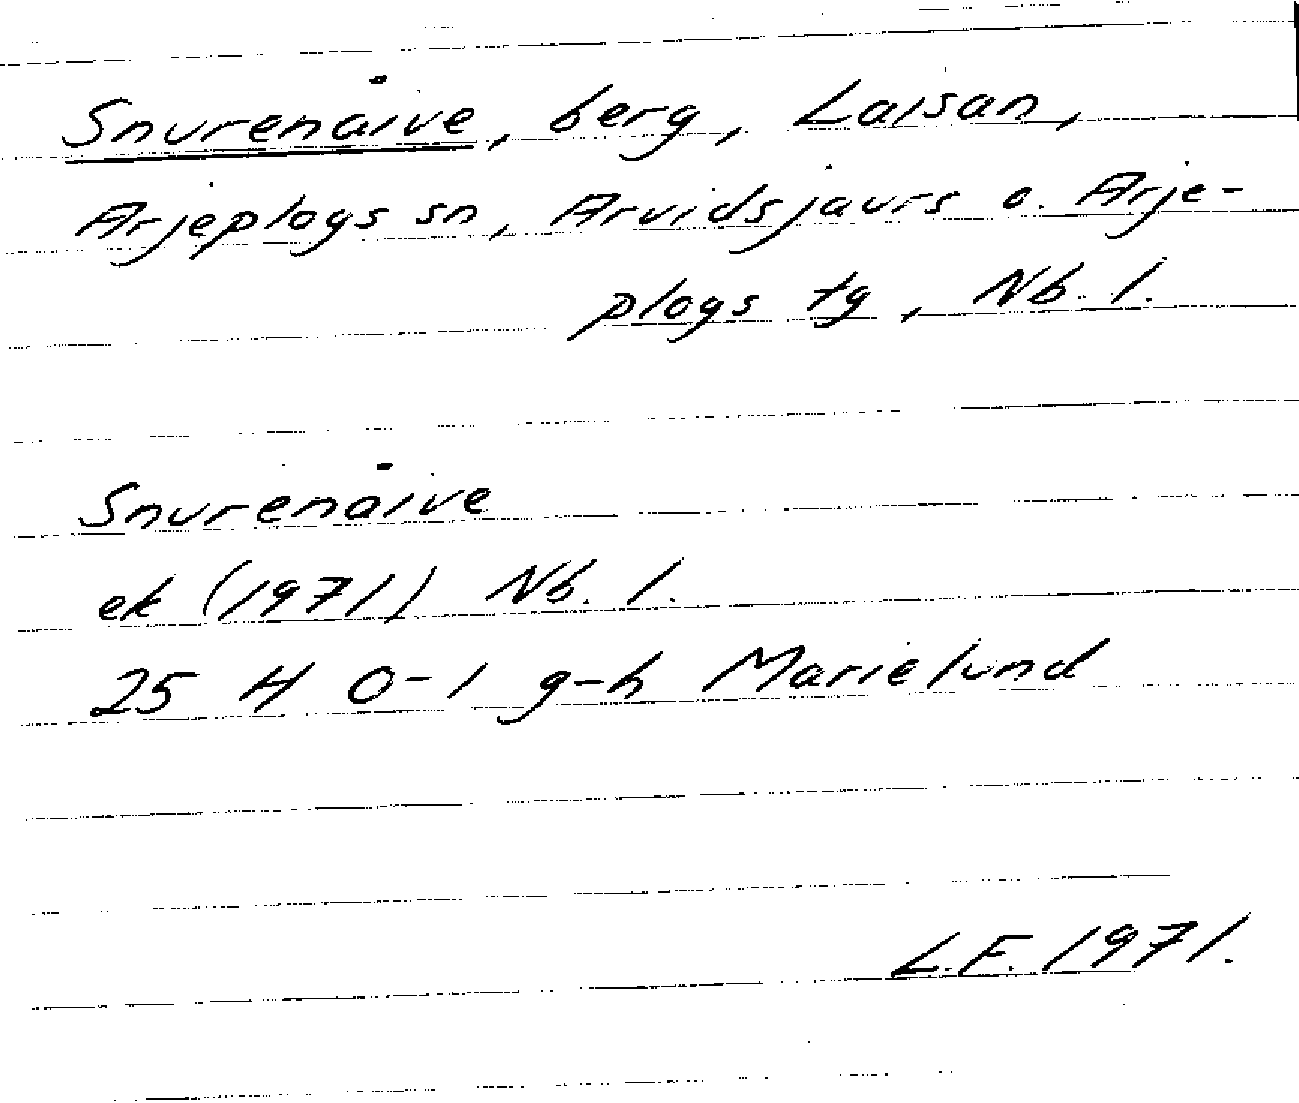 Snurenåive, berg, Laisan,
Arjeplogs sn, Arvidsjaurs o. Arje-
plogs tg, Nb. l.
Snurenåive
ek (1971) Nb. l.
25 H 0-1 g-h Marielund
L.F. 1971.